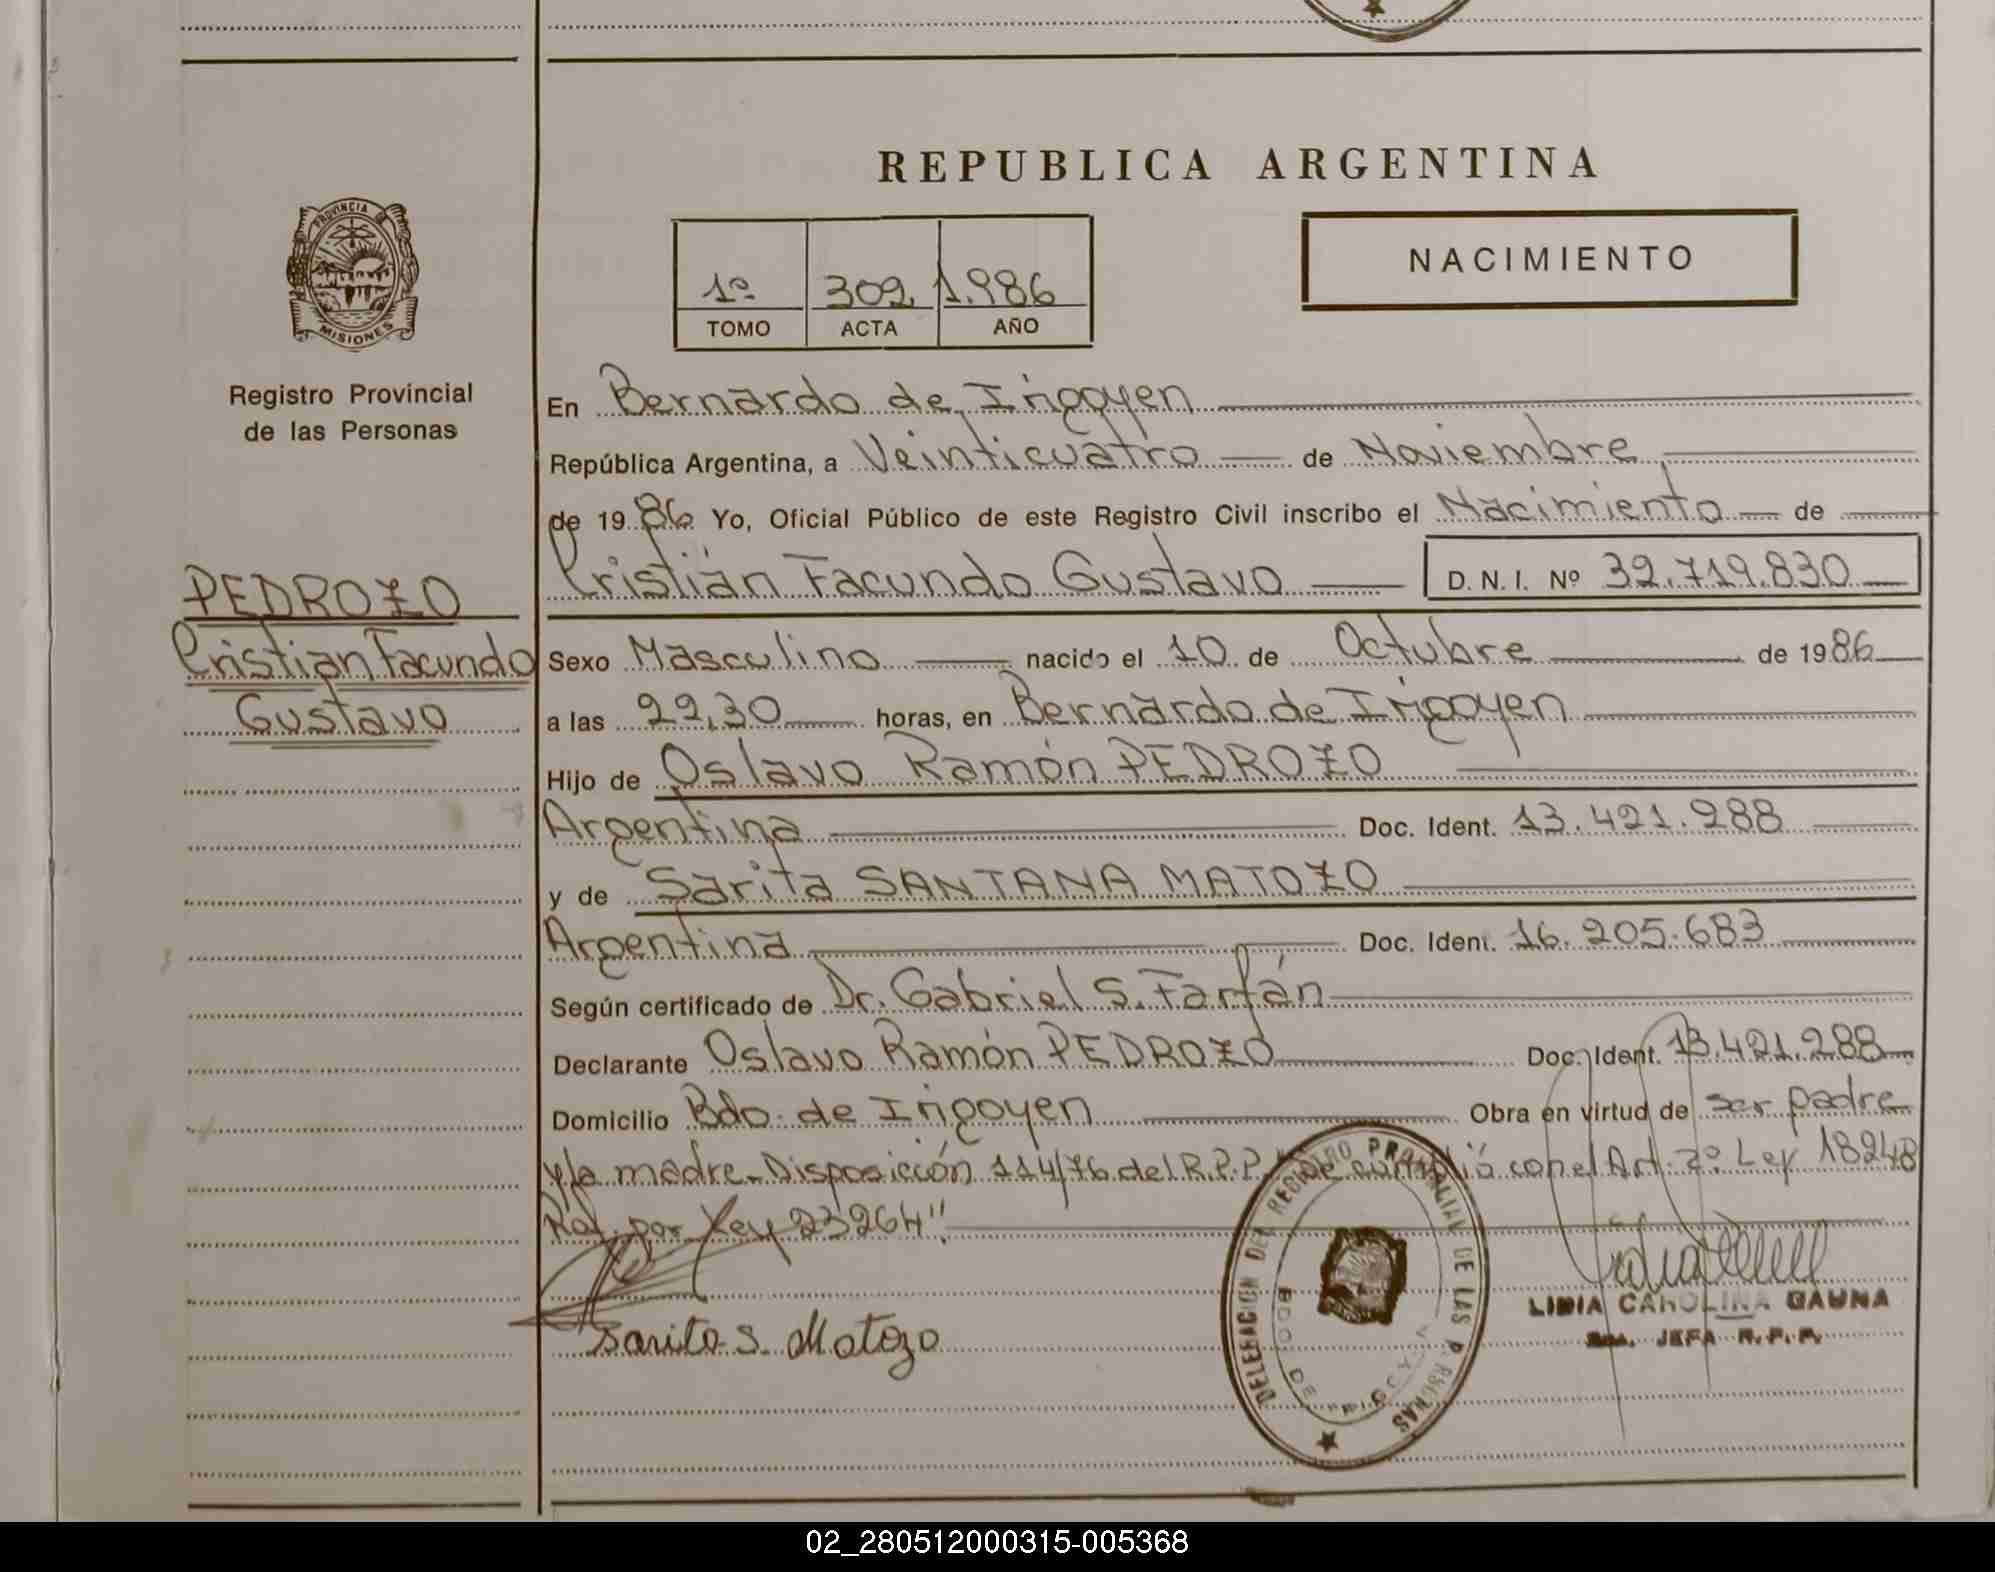 REPUBLICA ARGENTINA
PROVINCIA DE
MISIONES
Registro Provincial
de las Personas
1º 302 1.986
TOMO ACTA AÑO
NACIMIENTO
En Bernardo de Irigoyen
República Argentina, a Veinticuatro de Noviembre
de 1986 Yo, Oficial Público de este Registro Civil inscribo el Nacimiento de
Cristián Facundo Gustavo D. N. I. Nº 32.719.830
PEDROZO
Cristián Facundo
Gustavo
Sexo Masculino nacido el 10 de Octubre de 1986
a las 22,30 horas, en Bernardo de Irigoyen
Hijo de Oslavo Ramón PEDROZO
Argentina Doc. Ident. 13.421.288
y de Sarita SANTANA MATOZO
Argentina Doc. Ident. 16.205.683
Según certificado de Dr. Gabriel S. Farfán
Declarante Oslavo Ramón PEDROZO Doc. Ident. 13.421.288
Domicilio Bdo. de Irigoyen Obra en virtud de ser padre
y la madre - Disposición 114/76 del R.P.P. "Se cumplió con el Art. 2º Ley 18248
Ref. por Ley 23264"
Sarita S. Matozo
DELEGACION DEL REGISTRO PROVINCIAL DE LAS PERSONAS
BDO. DE IRIGOYEN
LIDIA CAROLINA GAUNA
JEFA R.P.P.
02_280512000315-005368